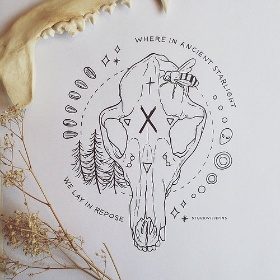 WHERE IN ANCIENT STARLIGHT
WE LAY IN REPOSE